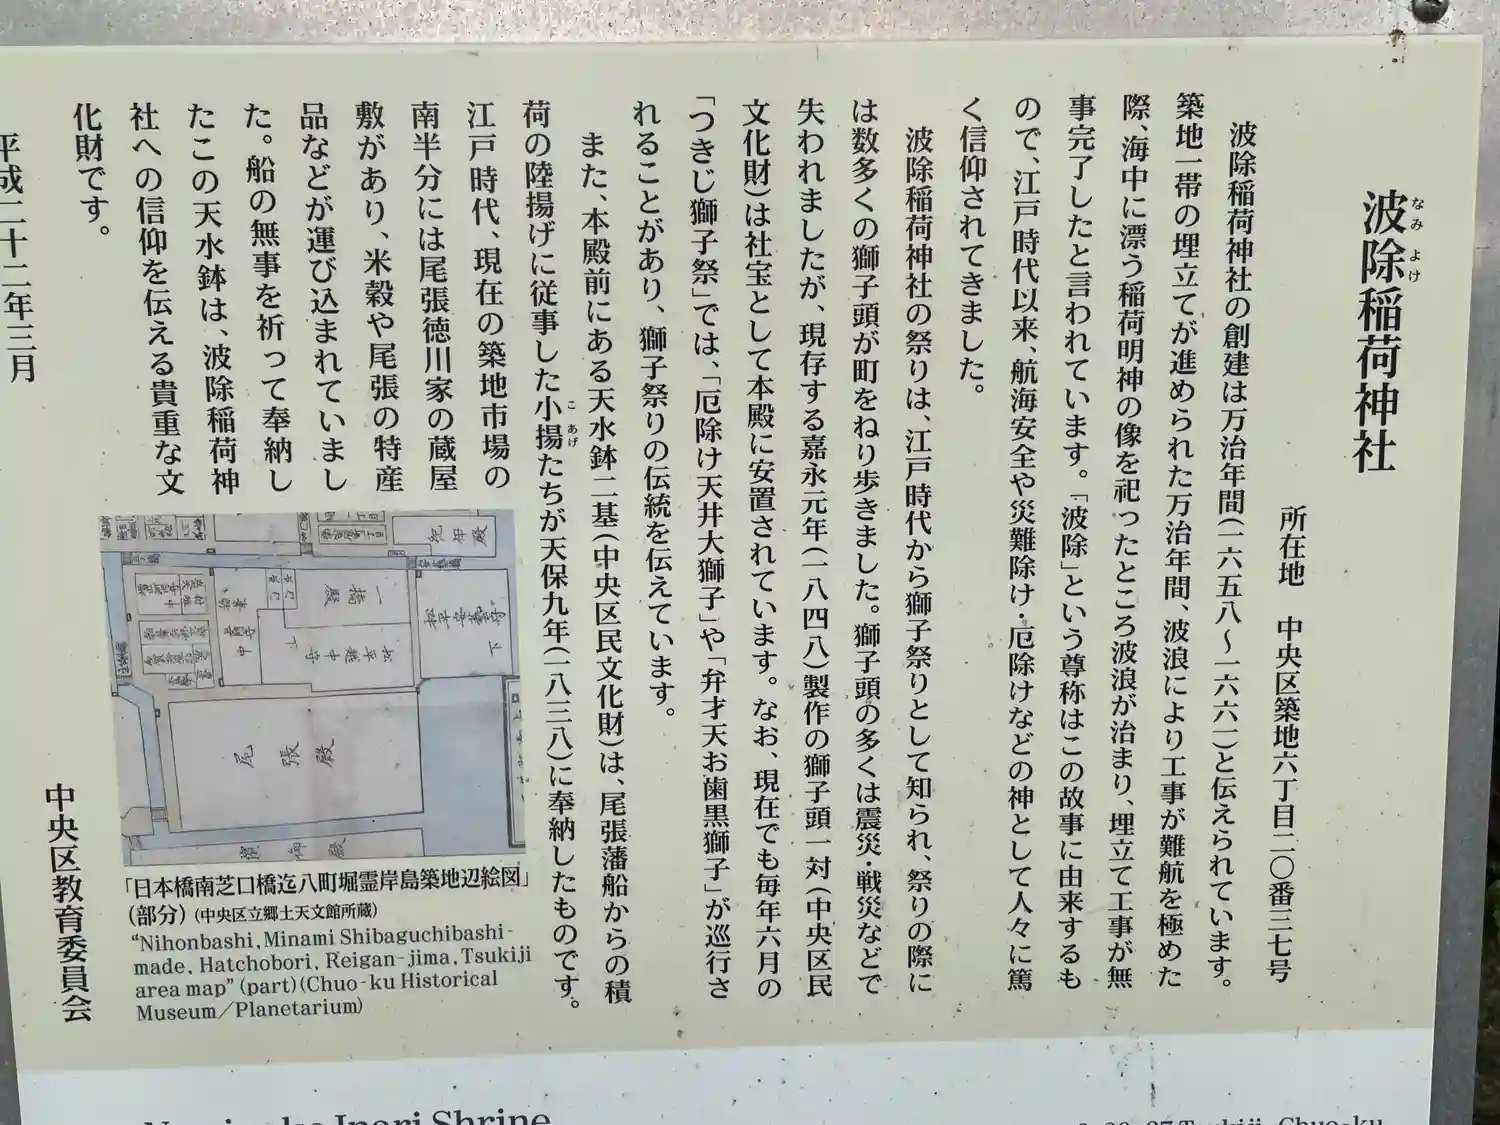 波除稲荷神社
なみよけ
所在地 中央区築地六丁目二〇番三七号
波除稲荷神社の創建は万治年間(一六五八〜一六六一)と伝えられています。
築地一帯の埋立てが進められた万治年間、波浪により工事が難航を極めた
際、海中に漂う稲荷明神の像を祀ったところ波浪が治まり、埋立て工事が無
事完了したと言われています。「波除」という尊称はこの故事に由来するも
ので、江戸時代以来、航海安全や災難除け・厄除けなどの神として人々に篤
く信仰されてきました。
波除稲荷神社の祭りは、江戸時代から獅子祭りとして知られ、祭りの際に
は数多くの獅子頭が町をねり歩きました。獅子頭の多くは震災・戦災などで
失われましたが、現存する嘉永元年(一八四八)製作の獅子頭一対(中央区民
文化財)は社宝として本殿に安置されています。なお、現在でも毎年六月の
「つきじ獅子祭」では、「厄除け天井大獅子」や「弁才天お歯黒獅子」が巡行さ
れることがあり、獅子祭りの伝統を伝えています。
また、本殿前にある天水鉢二基(中央区民文化財)は、尾張藩船からの積
荷の陸揚げに従事した小揚たちが天保九年(一八三八)に奉納したものです。
こあげ
江戸時代、現在の築地市場の
南半分には尾張徳川家の蔵屋
敷があり、米穀や尾張の特産
品などが運び込まれていまし
た。船の無事を祈って奉納し
たこの天水鉢は、波除稲荷神
社への信仰を伝える貴重な文
化財です。
平成二十二年三月
中央区教育委員会
一橋殿
松平越中守
松平安藝守
下
尾張殿
濱御殿
「日本橋南芝口橋迄八町堀霊岸島築地辺絵図」
(部分)(中央区立郷土天文館所蔵)
“Nihonbashi, Minami Shibaguchibashi-
made, Hatchobori, Reigan-jima, Tsukiji
area map” (part)(Chuo-ku Historical
Museum/Planetarium)
Inari Shrine
Tsukiji, Chuo-ku